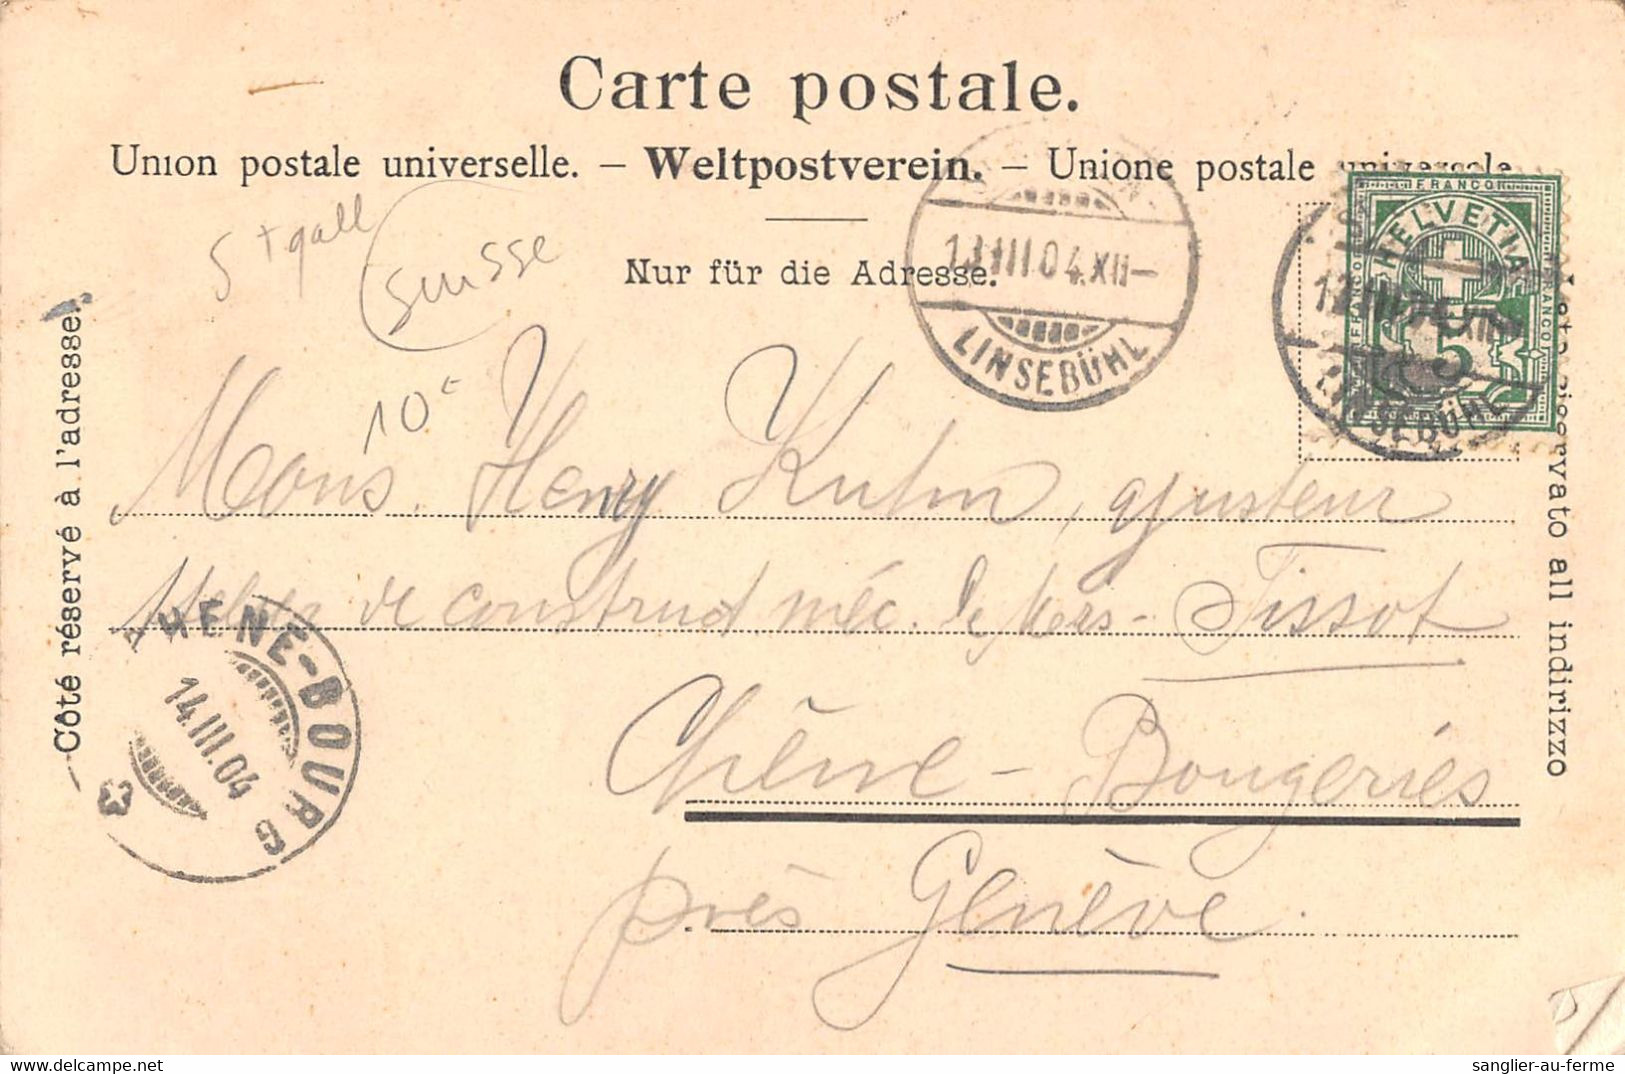 Carte postale.
Union postale universelle. – Weltpostverein. – Unione postale universale
Nur für die Adresse.
Côté réservé à l'adresse.
Lato riservato all indirizzo
St gall
Suisse
10c
LINSEBÜHL
FRANCO
HELVETIA
FRANCO
FRANCO
5
LINSEBÜHL
Mons. Henry Kuhn, ajusteur
Atelier de construct méc. de Mers. Tissot
Chêne-Bougeries
près Genève.
CHENE-BOURG
14.III.04
sanglier-au-ferme